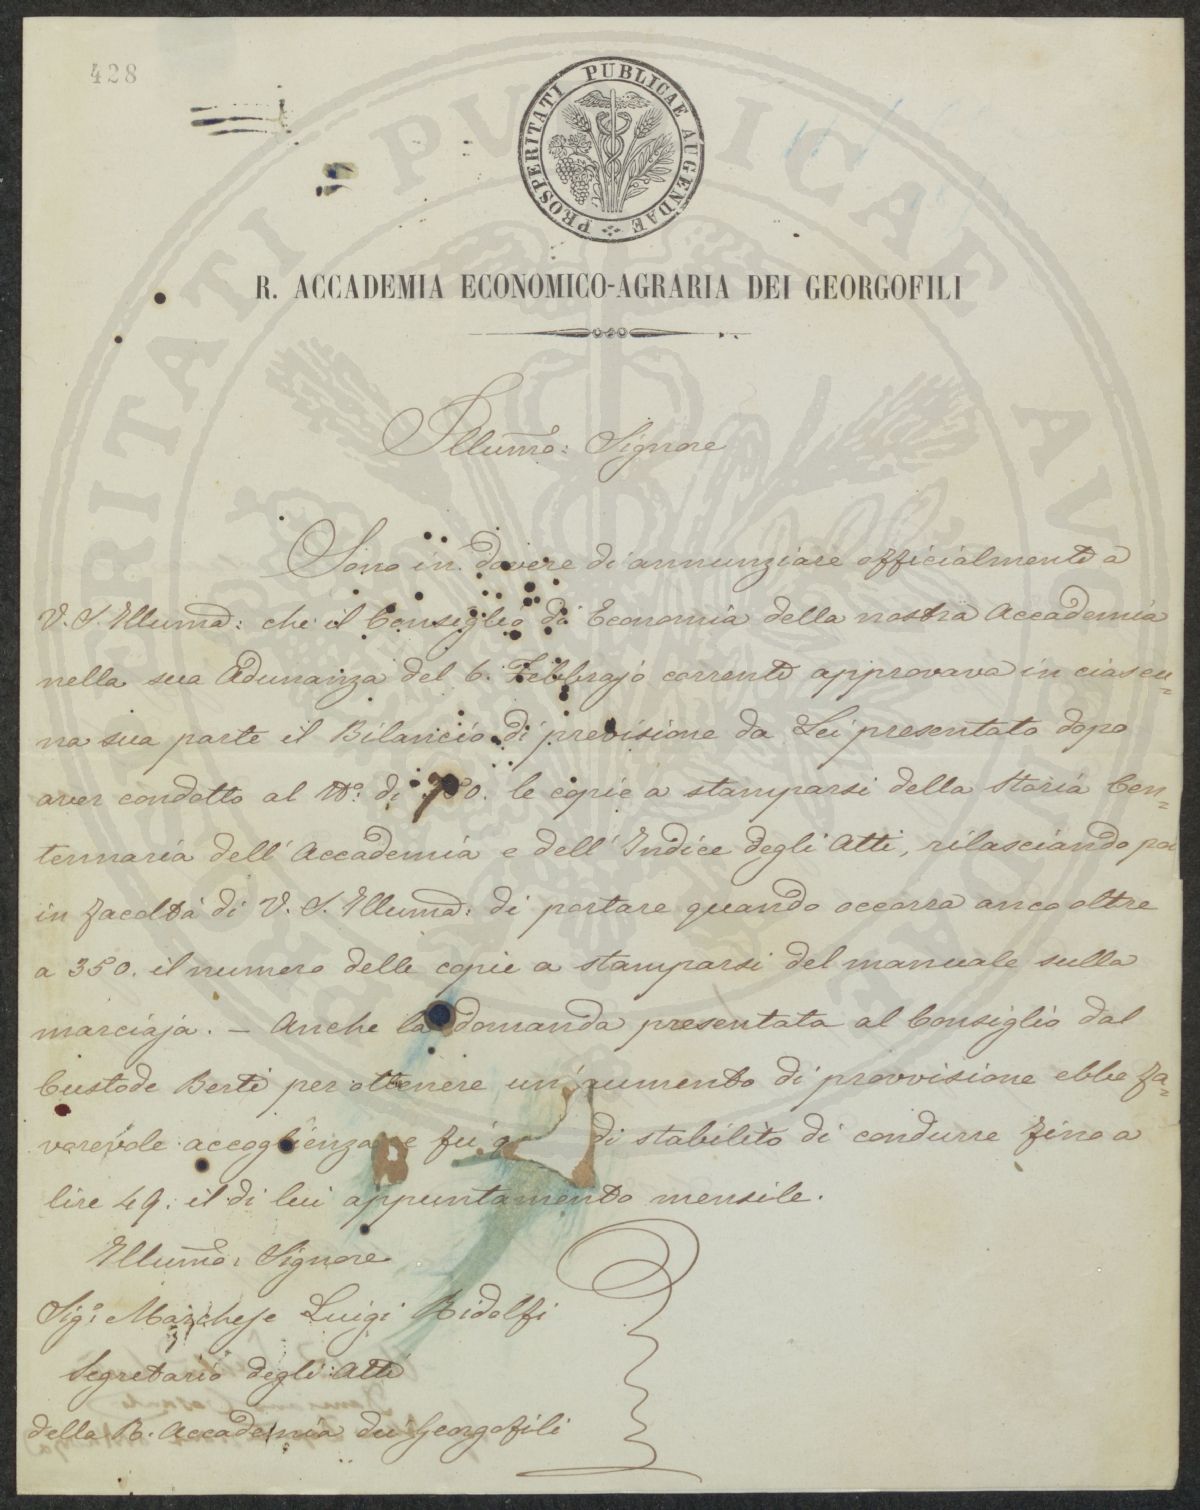 428
PROSPERITATI PUBLICAE AUGENDAE
R. ACCADEMIA ECONOMICO-AGRARIA DEI GEORGOFILI
Illumo: Signore
Sono in dovere di annunziare officialmente a
V. S. Illuma: che il Consiglio di Economia della nostra Accademia
nella sua Adunanza del 6. Febbrajo corrente approvava in ciascu=
na sua parte il Bilancio di previsione da Lei presentato dopo
aver condotto al No: di 750. le copie a stamparsi della Storia Cen=
tennaria dell' Accademia e dell' Indice degli Atti, rilasciando poi
in facoltà di V. S. Illuma: di portare quando occorra anco oltre
a 350. il numero delle copie a stamparsi del manuale sulla
marciaja. — Anche la domanda presentata al Consiglio dal
Custode Berti per ottenere un' aumento di provvisione ebbe fa=
vorevole accoglienza e fu di stabilito di condurre fino a
lire 49. il di lui appuntamento mensile.
Illumo: Signore
Sigr: Marchese Luigi Ridolfi
Segretario degli Atti
della R. Accademia dei Georgofili